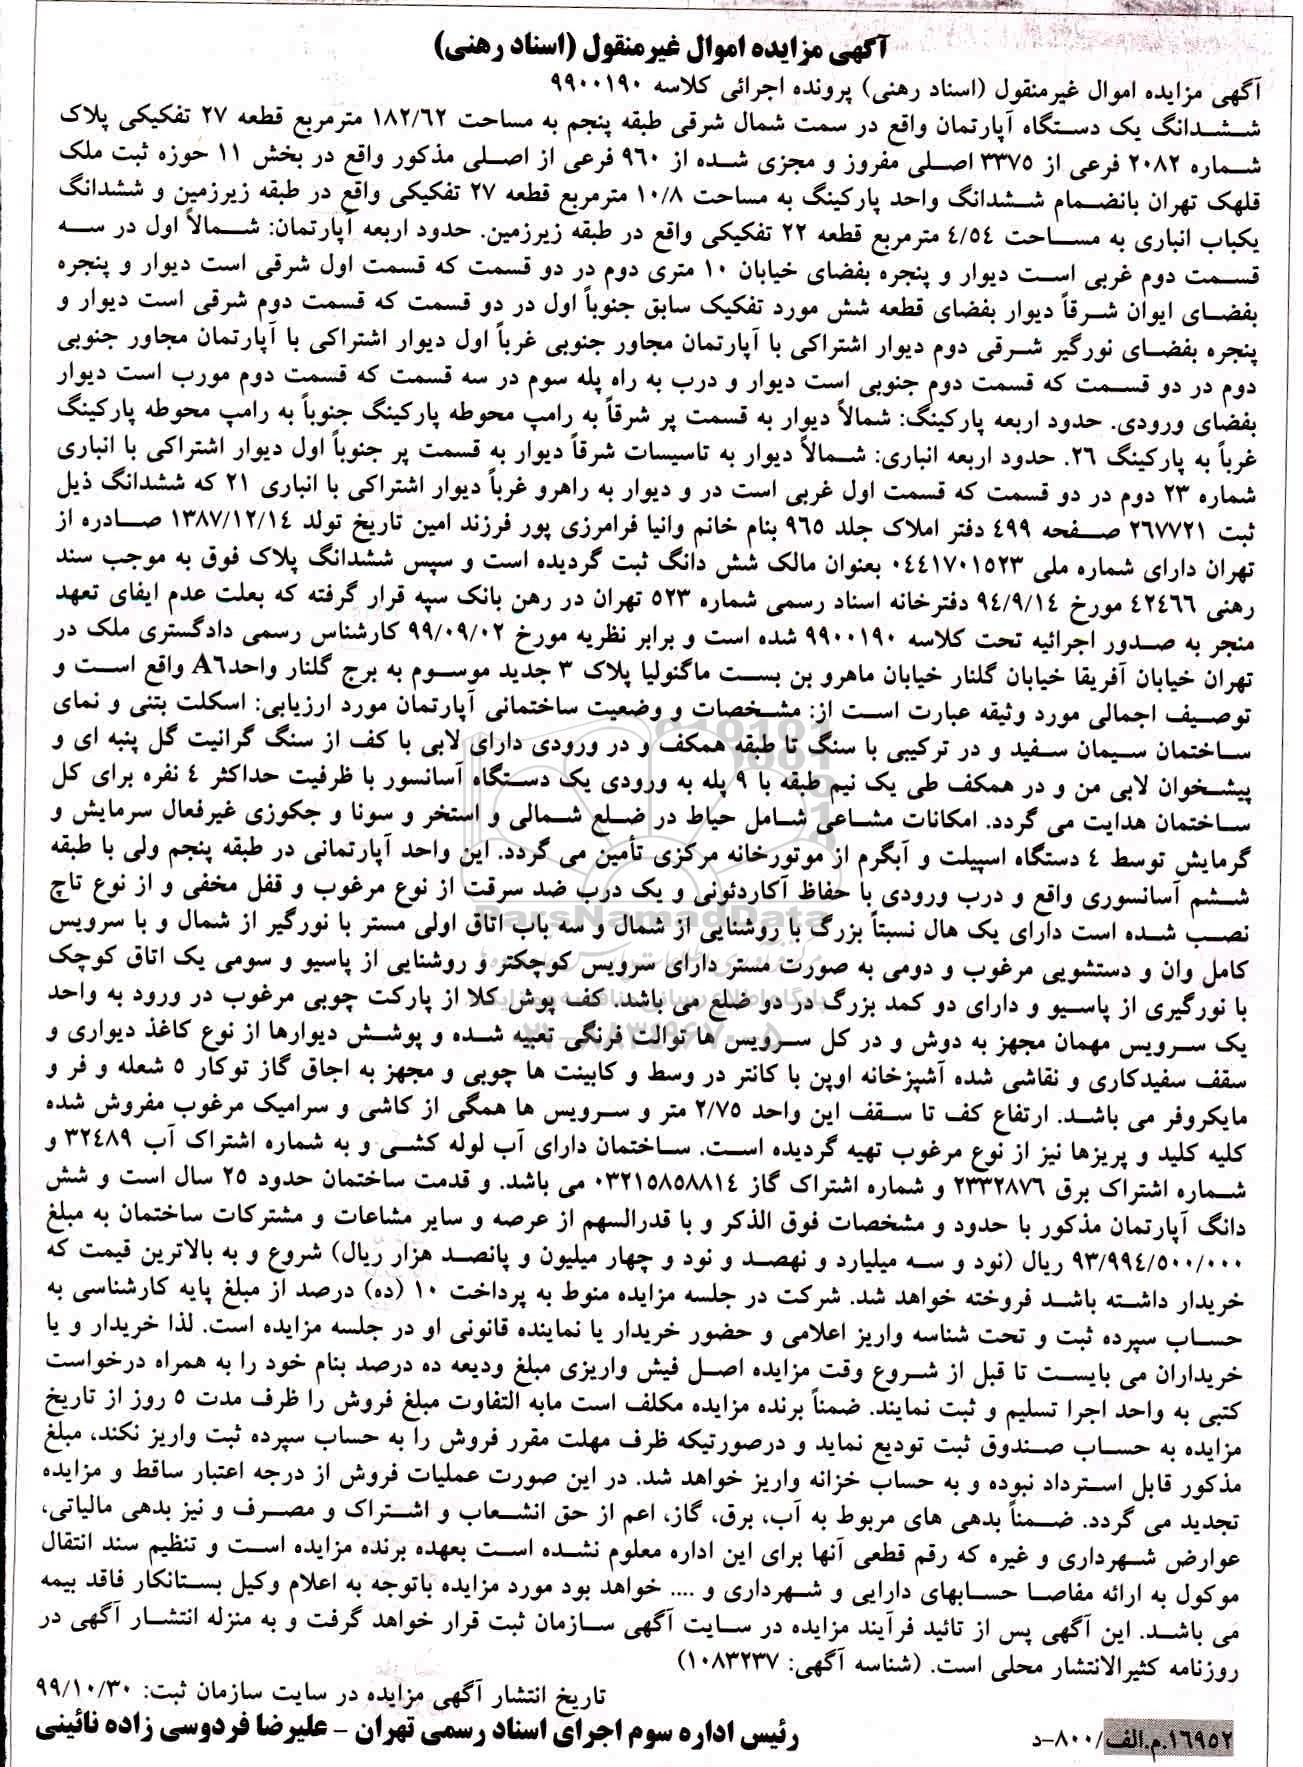 آگهی مزایده اموال غیرمنقول (اسناد رهنی)
آگهی مزایده اموال غیرمنقول (اسناد رهنی) پرونده اجرائی کلاسه ۹۹۰۰۱۹۰
ششدانگ یک دستگاه آپارتمان واقع در سمت شمال شرقی طبقه پنجم به مساحت ۱۸۲/۶۲ مترمربع قطعه ۲۷ تفکیکی پلاک
شماره ۲۰۸۲ فرعی از ۳۳۷۵ اصلی مفروز و مجزی شده از ۹۶۰ فرعی از اصلی مذکور واقع در بخش ۱۱ حوزه ثبت ملک
قلهک تهران بانضمام ششدانگ واحد پارکینگ به مساحت ۱۰/۸ مترمربع قطعه ۲۷ تفکیکی واقع در طبقه زیرزمین و ششدانگ
یکباب انباری به مساحت ۴/۵۴ مترمربع قطعه ۲۲ تفکیکی واقع در طبقه زیرزمین. حدود اربعه آپارتمان: شمالاً اول در سه
قسمت دوم غربی است دیوار و پنجره بفضای خیابان ۱۰ متری دوم در دو قسمت که قسمت اول شرقی است دیوار و پنجره
بفضای ایوان شرقاً دیوار بفضای قطعه شش مورد تفکیک سابق جنوباً اول در دو قسمت که قسمت دوم شرقی است دیوار و
پنجره بفضای نورگیر شرقی دوم دیوار اشتراکی با آپارتمان مجاور جنوبی غرباً اول دیوار اشتراکی با آپارتمان مجاور جنوبی
دوم در دو قسمت که قسمت دوم جنوبی است دیوار و درب به راه پله سوم در سه قسمت که قسمت دوم مورب است دیوار
بفضای ورودی. حدود اربعه پارکینگ: شمالاً دیوار به قسمت پر شرقاً به رامپ محوطه پارکینگ جنوباً به رامپ محوطه پارکینگ
غرباً به پارکینگ ۲۶. حدود اربعه انباری: شمالاً دیوار به تاسیسات شرقاً دیوار به قسمت پر جنوباً اول دیوار اشتراکی با انباری
شماره ۲۳ دوم در دو قسمت که قسمت اول غربی است در و دیوار به راهرو غرباً دیوار اشتراکی با انباری ۲۱ که ششدانگ ذیل
ثبت ۲۶۷۷۲۱ صفحه ۴۹۹ دفتر املاک جلد ۹۶۵ بنام خانم وانیا فرامرزی پور فرزند امین تاریخ تولد ۱۳۸۷/۱۲/۱۴ صادره از
تهران دارای شماره ملی ۰۴۴۱۷۰۱۵۲۳ بعنوان مالک شش دانگ ثبت گردیده است و سپس ششدانگ پلاک فوق به موجب سند
رهنی ۴۲۴۶۶ مورخ ۹۴/۹/۱۴ دفترخانه اسناد رسمی شماره ۵۲۳ تهران در رهن بانک سپه قرار گرفته که بعلت عدم ایفای تعهد
منجر به صدور اجرائیه تحت کلاسه ۹۹۰۰۱۹۰ شده است و برابر نظریه مورخ ۹۹/۰۹/۰۲ کارشناس رسمی دادگستری ملک در
تهران خیابان آفریقا خیابان گلنار خیابان ماهرو بن بست ماگنولیا پلاک ۳ جدید موسوم به برج گلنار واحد A۶ واقع است و
توصیف اجمالی مورد وثیقه عبارت است از: مشخصات و وضعیت ساختمانی آپارتمان مورد ارزیابی: اسکلت بتنی و نمای
ساختمان سیمان سفید و در ترکیبی با سنگ تا طبقه همکف و در ورودی دارای لابی با کف از سنگ گرانیت گل پنبه ای و
پیشخوان لابی من و در همکف طی یک نیم طبقه با ۹ پله به ورودی یک دستگاه آسانسور با ظرفیت حداکثر ۴ نفره برای کل
ساختمان هدایت می گردد. امکانات مشاعی شامل حیاط در ضلع شمالی و استخر و سونا و جکوزی غیرفعال سرمایش و
گرمایش توسط ۴ دستگاه اسپیلت و آبگرم از موتورخانه مرکزی تأمین می گردد. این واحد آپارتمانی در طبقه پنجم ولی با طبقه
ششم آسانسوری واقع و درب ورودی با حفاظ آکاردئونی و یک درب ضد سرقت از نوع مرغوب و قفل مخفی و از نوع تاچ
نصب شده است دارای یک هال نسبتاً بزرگ با روشنایی از شمال و سه باب اتاق اولی مستر با نورگیر از شمال و با سرویس
کامل وان و دستشویی مرغوب و دومی به صورت مستر دارای سرویس کوچکتر و روشنایی از پاسیو و سومی یک اتاق کوچک
با نورگیری از پاسیو و دارای دو کمد بزرگ در دو ضلع می باشد. کف پوش کلا از پارکت چوبی مرغوب در ورود به واحد
یک سرویس مهمان مجهز به دوش و در کل سرویس ها توالت فرنگی تعبیه شده و پوشش دیوارها از نوع کاغذ دیواری و
سقف سفیدکاری و نقاشی شده آشپزخانه اوپن با کانتر در وسط و کابینت ها چوبی و مجهز به اجاق گاز توکار ۵ شعله و فر و
مایکروفر می باشد. ارتفاع کف تا سقف این واحد ۲/۷۵ متر و سرویس ها همگی از کاشی و سرامیک مرغوب مفروش شده
کلیه کلید و پریزها نیز از نوع مرغوب تهیه گردیده است. ساختمان دارای آب لوله کشی و به شماره اشتراک آب ۳۲۴۸۹ و
شماره اشتراک برق ۲۳۳۲۸۷۶ و شماره اشتراک گاز ۰۳۲۱۵۸۵۸۸۱۴ می باشد. و قدمت ساختمان حدود ۲۵ سال است و شش
دانگ آپارتمان مذکور با حدود و مشخصات فوق الذکر و با قدرالسهم از عرصه و سایر مشاعات و مشترکات ساختمان به مبلغ
۹۳/۹۹۴/۵۰۰/۰۰۰ ریال (نود و سه میلیارد و نهصد و نود و چهار میلیون و پانصد هزار ریال) شروع و به بالاترین قیمت که
خریدار داشته باشد فروخته خواهد شد. شرکت در جلسه مزایده منوط به پرداخت ۱۰ (ده) درصد از مبلغ پایه کارشناسی به
حساب سپرده ثبت و تحت شناسه واریز اعلامی و حضور خریدار یا نماینده قانونی او در جلسه مزایده است. لذا خریدار و یا
خریداران می بایست تا قبل از شروع وقت مزایده اصل فیش واریزی مبلغ ودیعه ده درصد بنام خود را به همراه درخواست
کتبی به واحد اجرا تسلیم و ثبت نمایند. ضمناً برنده مزایده مکلف است مابه التفاوت مبلغ فروش را ظرف مدت ۵ روز از تاریخ
مزایده به حساب صندوق ثبت تودیع نماید و درصورتیکه ظرف مهلت مقرر فروش را به حساب سپرده ثبت واریز نکند، مبلغ
مذکور قابل استرداد نبوده و به حساب خزانه واریز خواهد شد. در این صورت عملیات فروش از درجه اعتبار ساقط و مزایده
تجدید می گردد. ضمناً بدهی های مربوط به آب، برق، گاز، اعم از حق انشعاب و اشتراک و مصرف و نیز بدهی مالیاتی،
عوارض شهرداری و غیره که رقم قطعی آنها برای این اداره معلوم نشده است بعهده برنده مزایده است و تنظیم سند انتقال
موکول به ارائه مفاصا حسابهای دارایی و شهرداری و .... خواهد بود مورد مزایده باتوجه به اعلام وکیل بستانکار فاقد بیمه
می باشد. این آگهی پس از تائید فرآیند مزایده در سایت آگهی سازمان ثبت قرار خواهد گرفت و به منزله انتشار آگهی در
روزنامه کثیرالانتشار محلی است. (شناسه آگهی: ۱۰۸۳۲۳۷)
تاریخ انتشار آگهی مزایده در سایت سازمان ثبت: ۹۹/۱۰/۳۰
رئیس اداره سوم اجرای اسناد رسمی تهران - علیرضا فردوسی زاده نائینی
۱۶۹۵۲.م.الف/۸۰۰-د
ParsNamadData